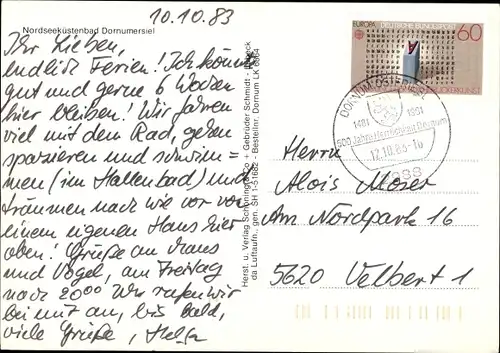 10.10.83
Nordseeküstenbad Dornumersiel
Ihr Lieben,
endlich Ferien! Ich könnte
gut und gerne 6 Wochen
hier bleiben! Wir fahren
viel mit dem Rad, gehen
spazieren und schwim-
men (im Hallenbad) und
träumen nach wie vor von
einem eigenen Haus hier
oben! Grüße an
und Vogel, am Freitag
nach 20°° Uhr rufen wir
bei mit an, bis bald,
viele Grüße, Helga
Herst. u. Verlag Schöning & Co + Gebrüder Schmidt
da Luftaufn., gen. SH 1-51682 - Bestellnr. Dornum LK 6664
EUROPA DEUTSCHE BUNDESPOST
60
DORNUM, OSTFRIESL
1481 1981
500 Jahre Herrlichkeit Dornum
12.10.83-10
2988
Herrn
Alois Moser
Am Nordpark 16
5620 Velbert 1